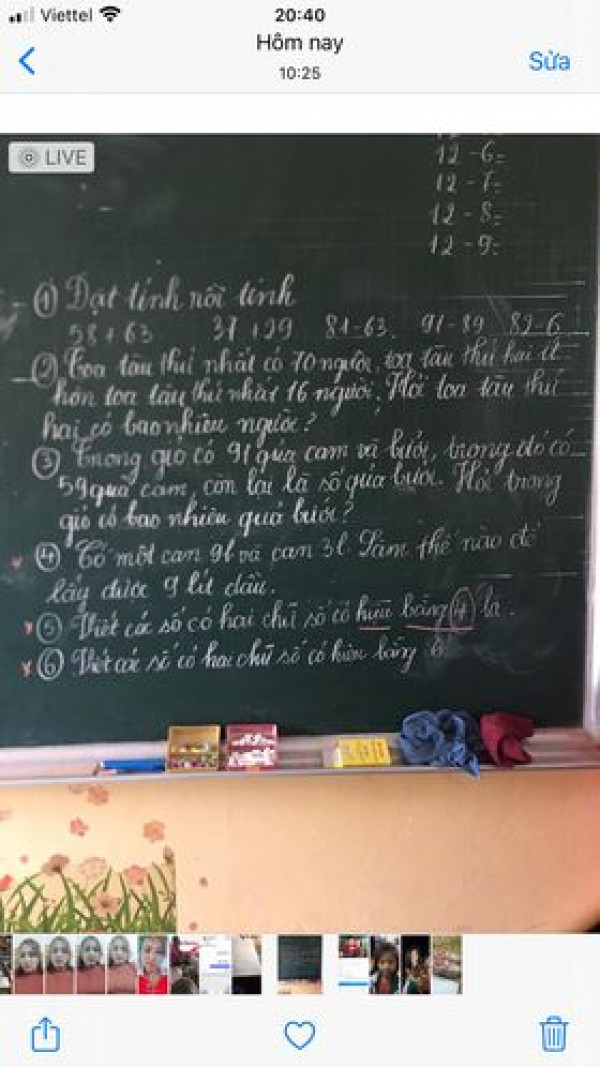 Viettel
20:40
Hôm nay
10:25
Sửa
LIVE
12 - 6 =
12 - 7 =
12 - 8 =
12 - 9 =
① Đặt tính rồi tính
58 + 63 37 + 29 81 - 63 91 - 89 82 - 6
② Toa tàu thứ nhất có 70 người, toa tàu thứ hai ít
hơn toa tàu thứ nhất 16 người. Hỏi toa tàu thứ
hai có bao nhiêu người?
③ Trong giỏ có 91 quả cam và bưởi, trong đó có
59 quả cam, còn lại là số quả bưởi. Hỏi trong
giỏ có bao nhiêu quả bưởi?
④ Có một can 9l và can 3l. Làm thế nào để
lấy được 9 lít dầu.
⑤ Viết các số có hai chữ số có hiệu bằng 4 là.
⑥ Viết các số có hai chữ số có hiệu bằng 6